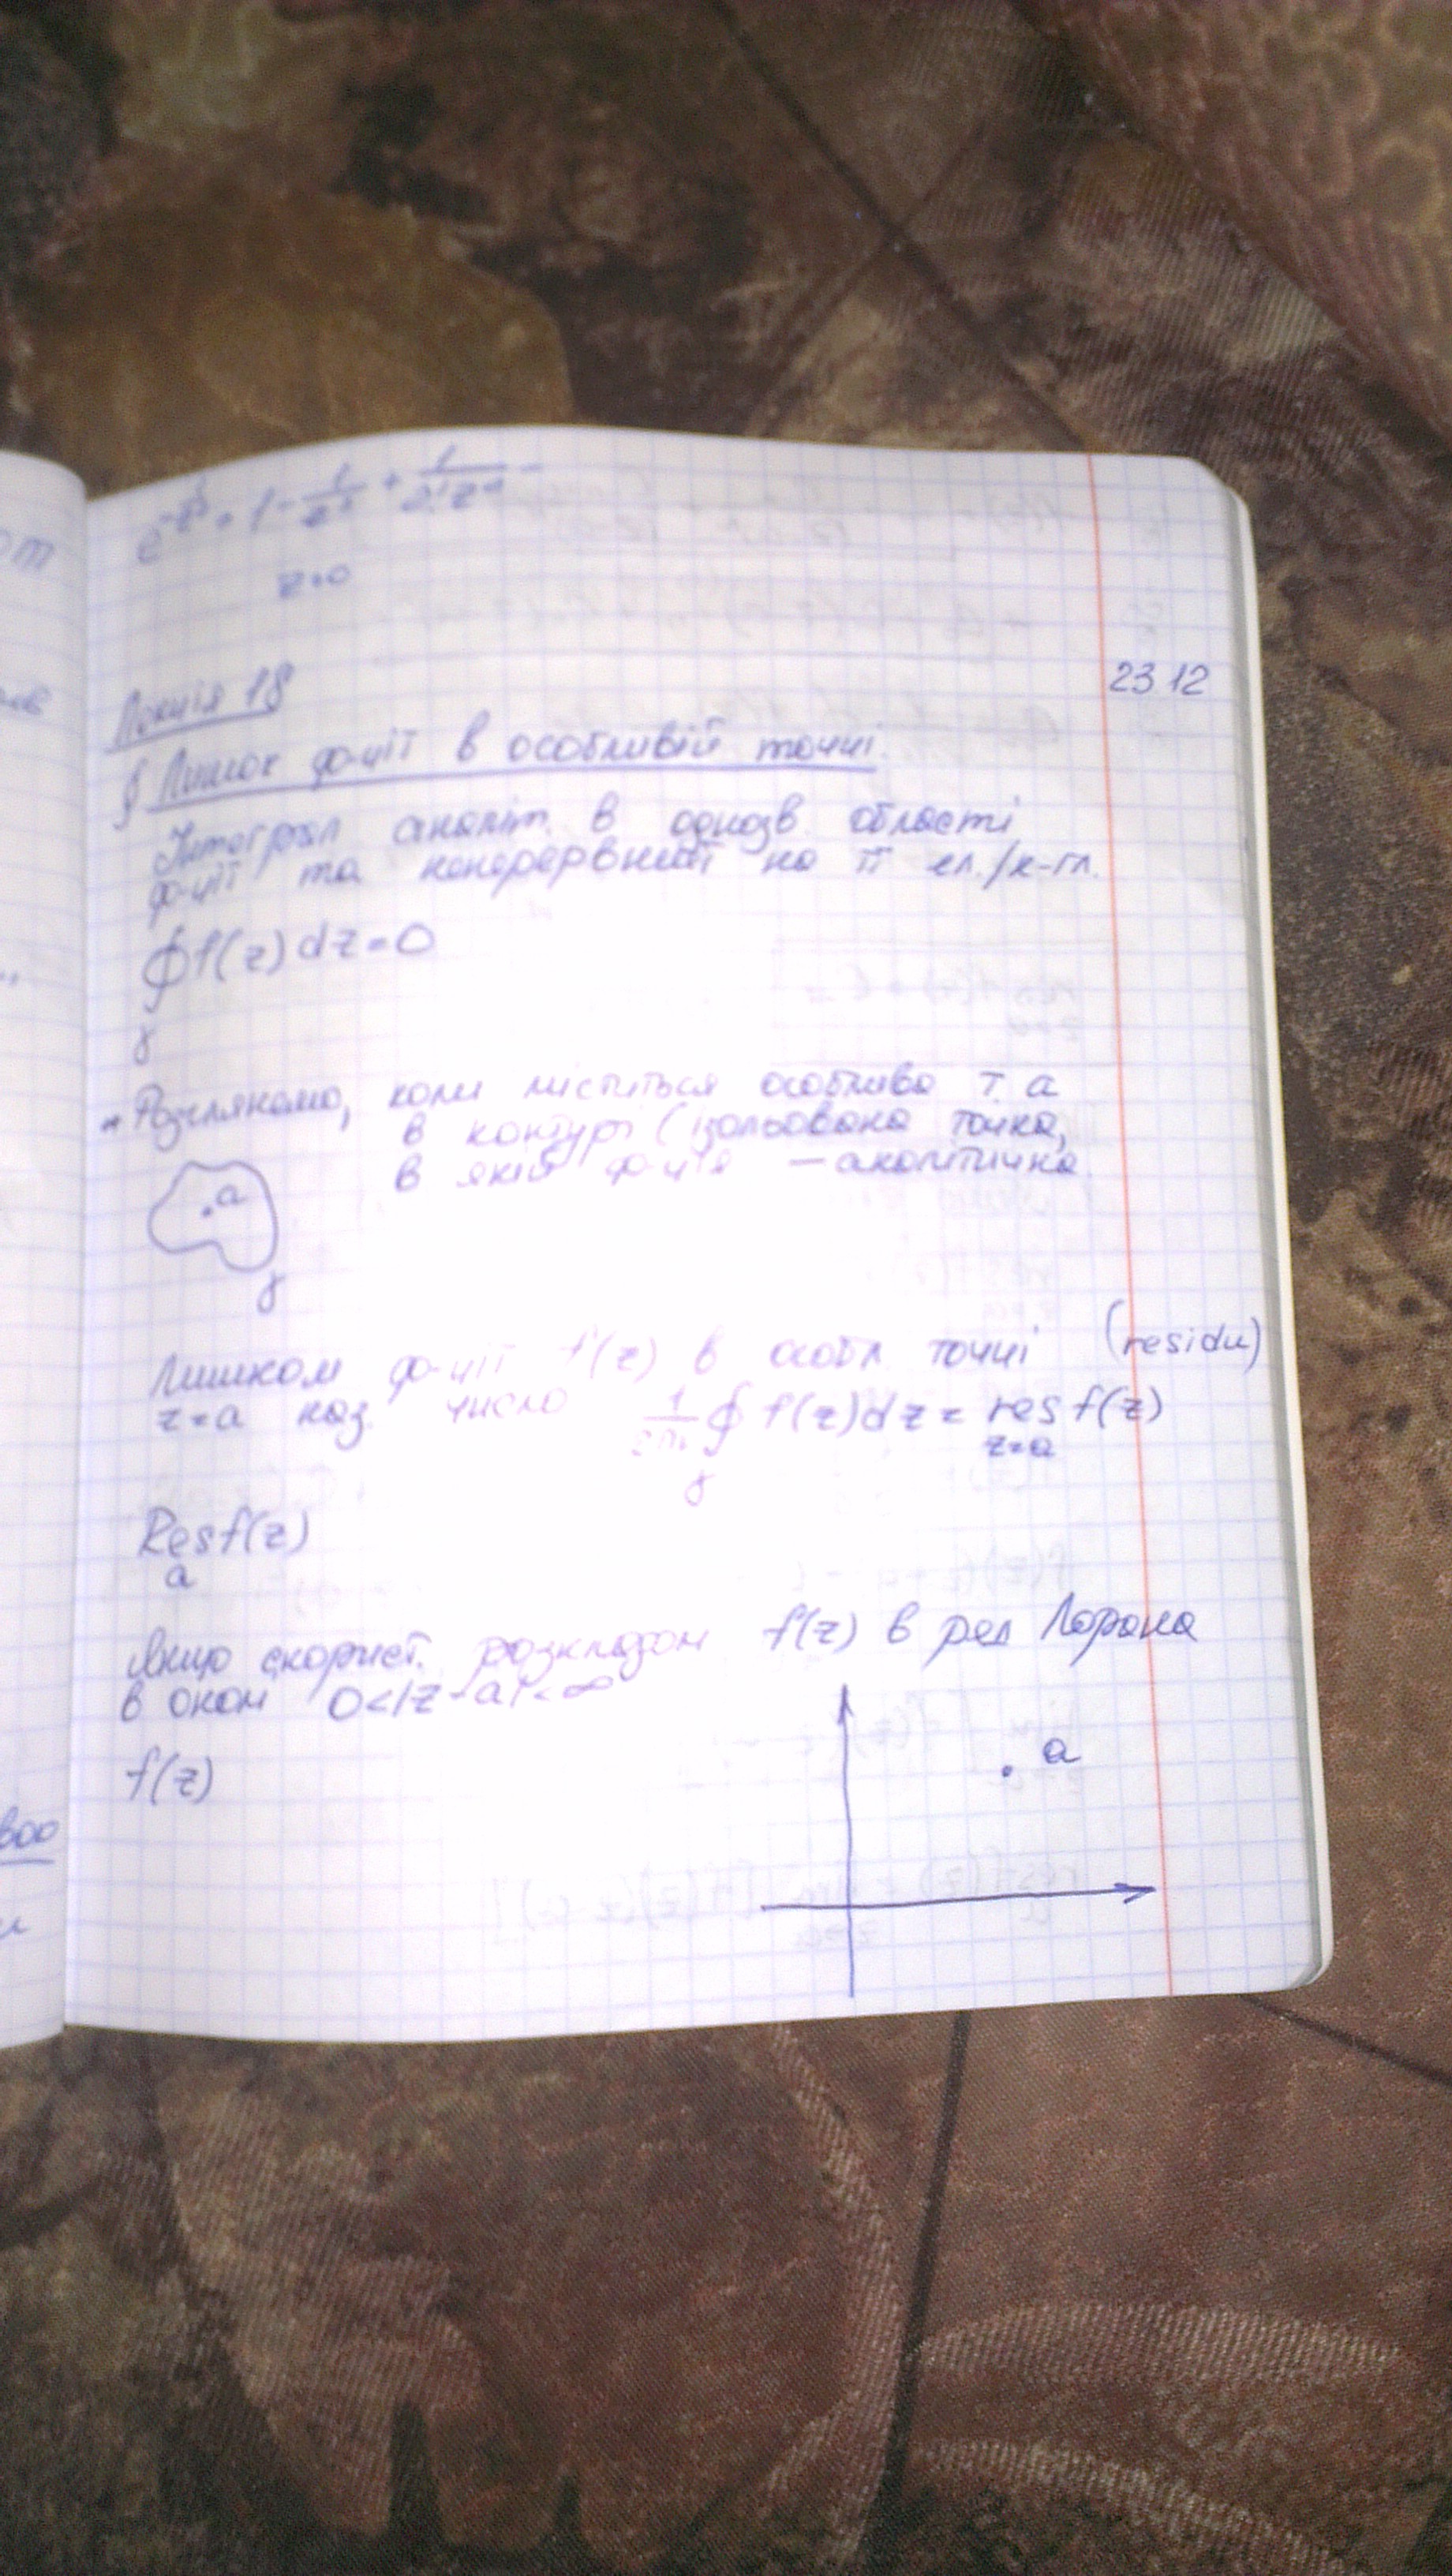 e^{-1/z²} = 1 - 1/z² + 1/2!z⁴ -
z=0
23 12
Лекція 18
§ Лишок ф-ції в особливій точці.
Інтеграл аналіт. в однозв. області
ф-ції та неперервний на її кл./к-гл.
∮f(z)dz=0
γ
Розглянемо, коли міститься особлива т. а
в контурі (ізольована точка,
в якій ф-ція — аналітична
а
γ
Лишком ф-ції f(z) в особл точці (residu)
z=a наз. число 1/2πi ∮ f(z)dz = res f(z)
γ z=a
Res f(z)
a
якщо скорист. розкладом f(z) в ряд Лорана
в окол 0<|z-a|<∞
а
f(z)